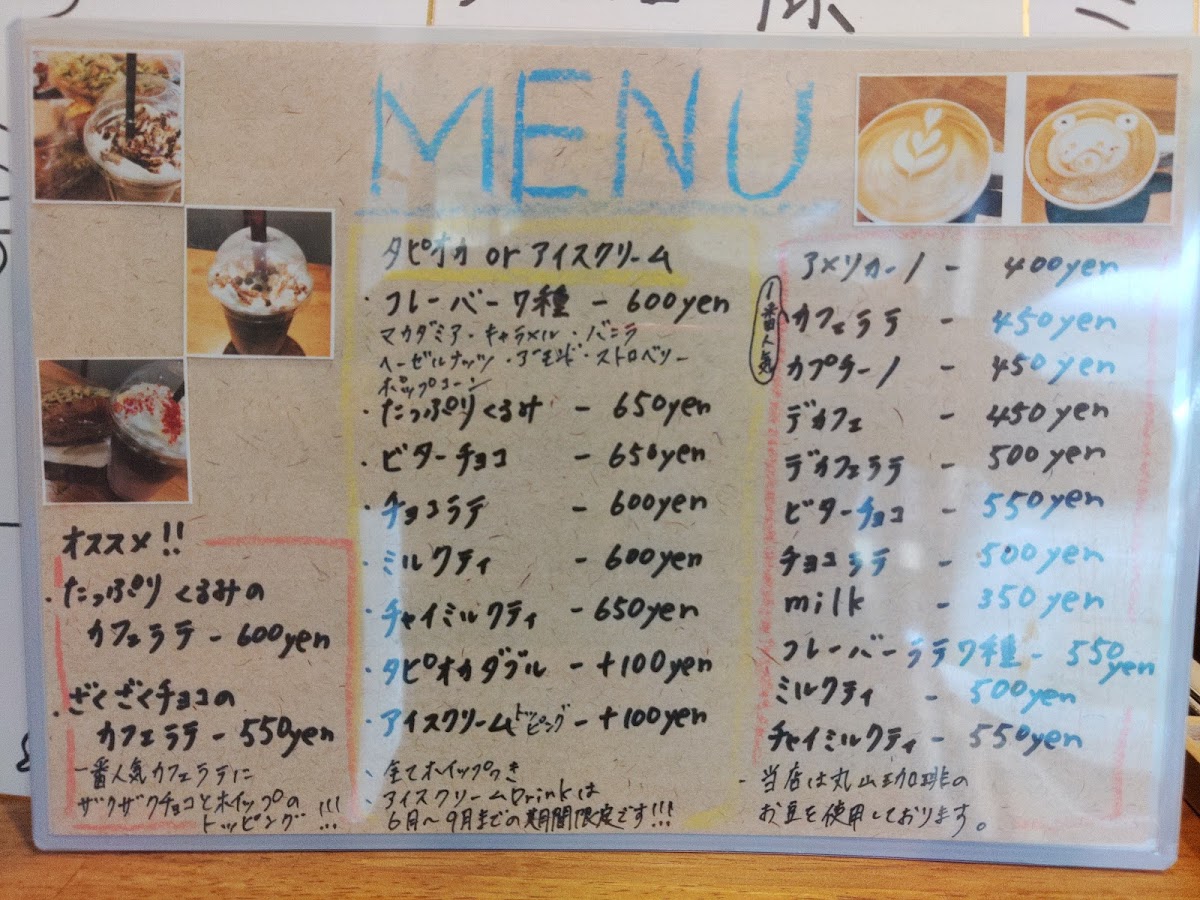 MENU
オススメ!!
・たっぷりくるみの
カフェラテ - 600yen
・ざくざくチョコの
カフェラテ - 550yen
一番人気カフェラテに
ザクザクチョコとホイップの
トッピング!!!
タピオカ or アイスクリーム
・フレーバー7種 - 600yen
マカダミア・キャラメル・バニラ
ヘーゼルナッツ・アーモンド・ストロベリー
ポップコーン
・たっぷりくるみ - 650yen
・ビターチョコ - 650yen
・チョコラテ - 600yen
・ミルクティ - 600yen
・チャイミルクティ - 650yen
・タピオカダブル - +100yen
・アイスクリームトッピング - +100yen
、全てホイップつき
・アイスクリームDrinkは
6月〜9月までの期間限定です!!!
アメリカーノ - 400yen
1番人気
カフェラテ - 450yen
カプチーノ - 450yen
デカフェ - 450yen
デカフェラテ - 500yen
ビターチョコ - 550yen
チョコラテ - 500yen
milk - 350yen
フレーバーラテ7種 - 550yen
ミルクティ - 500yen
チャイミルクティ - 550yen
・当店は丸山珈琲の
お豆を使用しております。